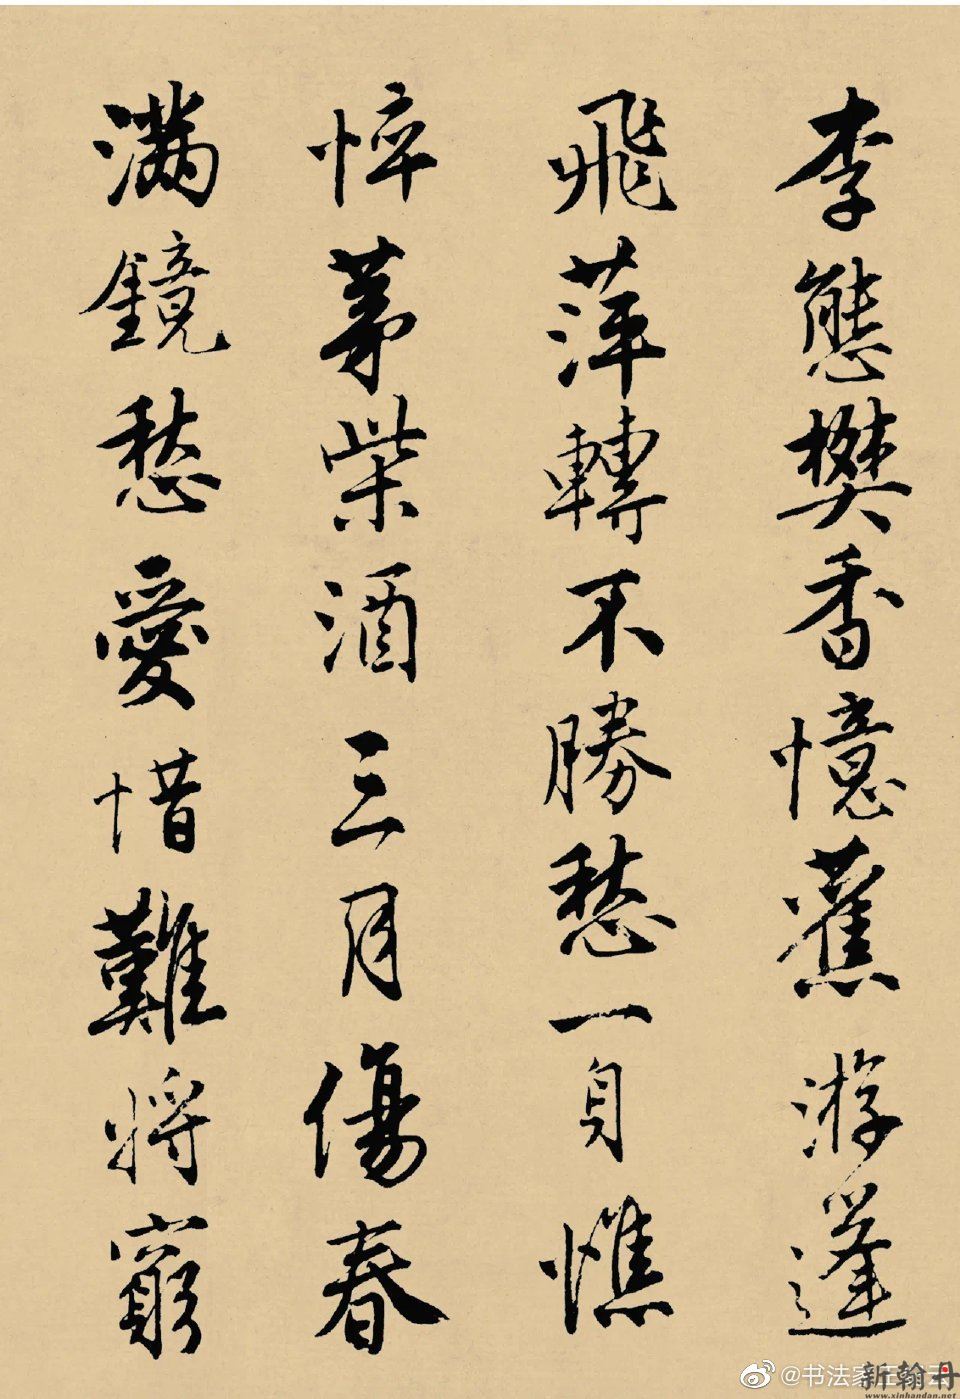 李態樊香憶舊游蓬
飛萍轉不勝愁一身憔
悴茅柴酒三月傷春
滿鏡愁愛惜難將窮
@书法家王
新翰丹
www.xinhandan.net